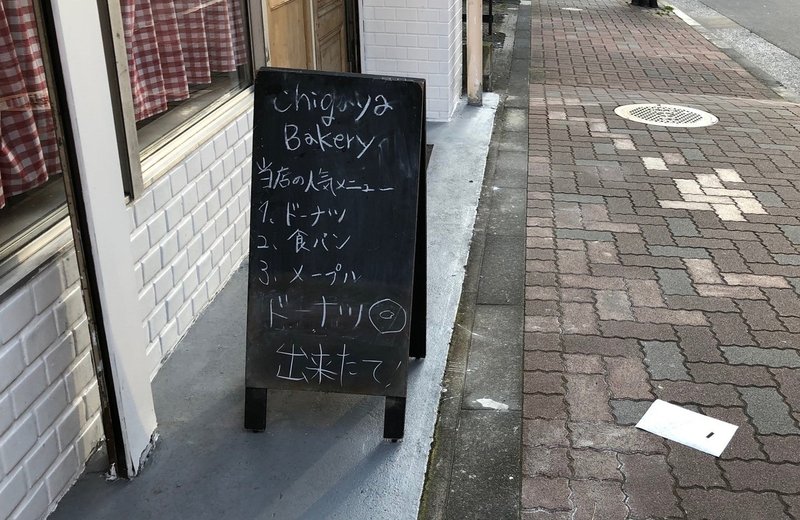 chigaya
Bakery
当店の人気メニュー
1、ドーナツ
2、食パン
3、メープル
ドーナツ
出来たて!